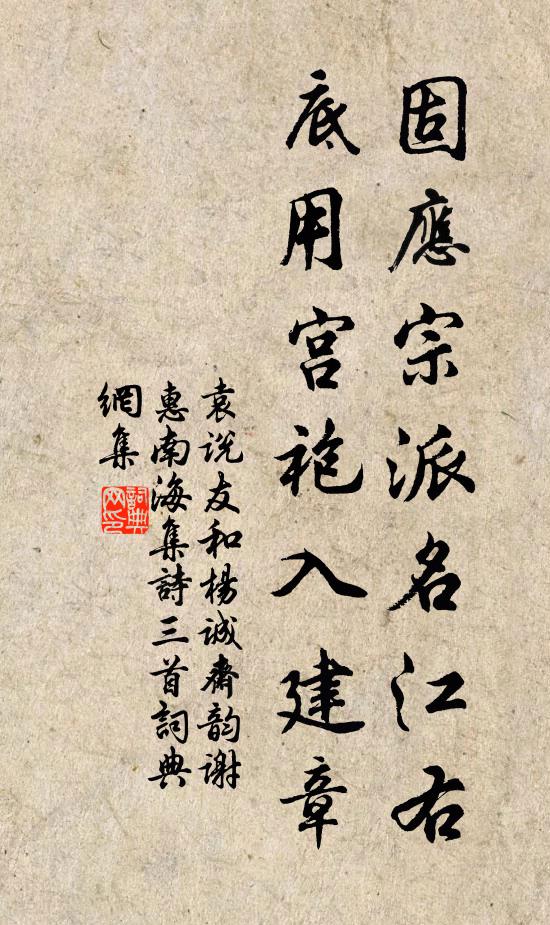 固應宗派名江右
底用宮袍入建章
袁说友和楊誠齋韵謝
惠南海集詩三首詞典
網集
詞典
网印